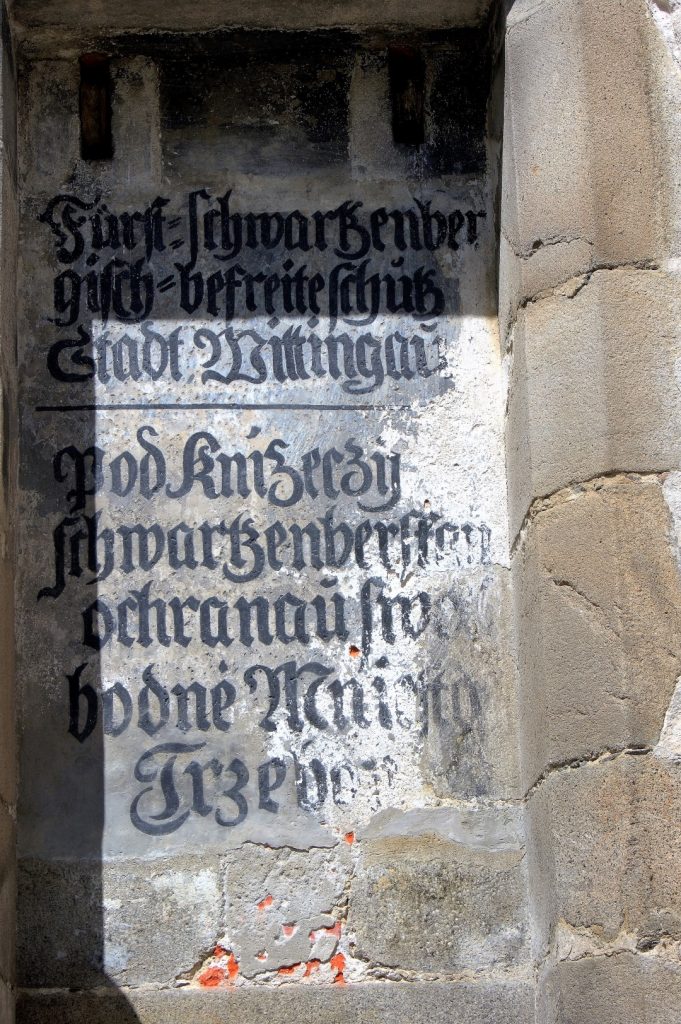 Fürst=schwartzenber
gisch=befreite schutz
Stadt Wittingau
Pod knizeczy
schwartzenberskau
ochranau swo
bodné Mniesto
Trzebon